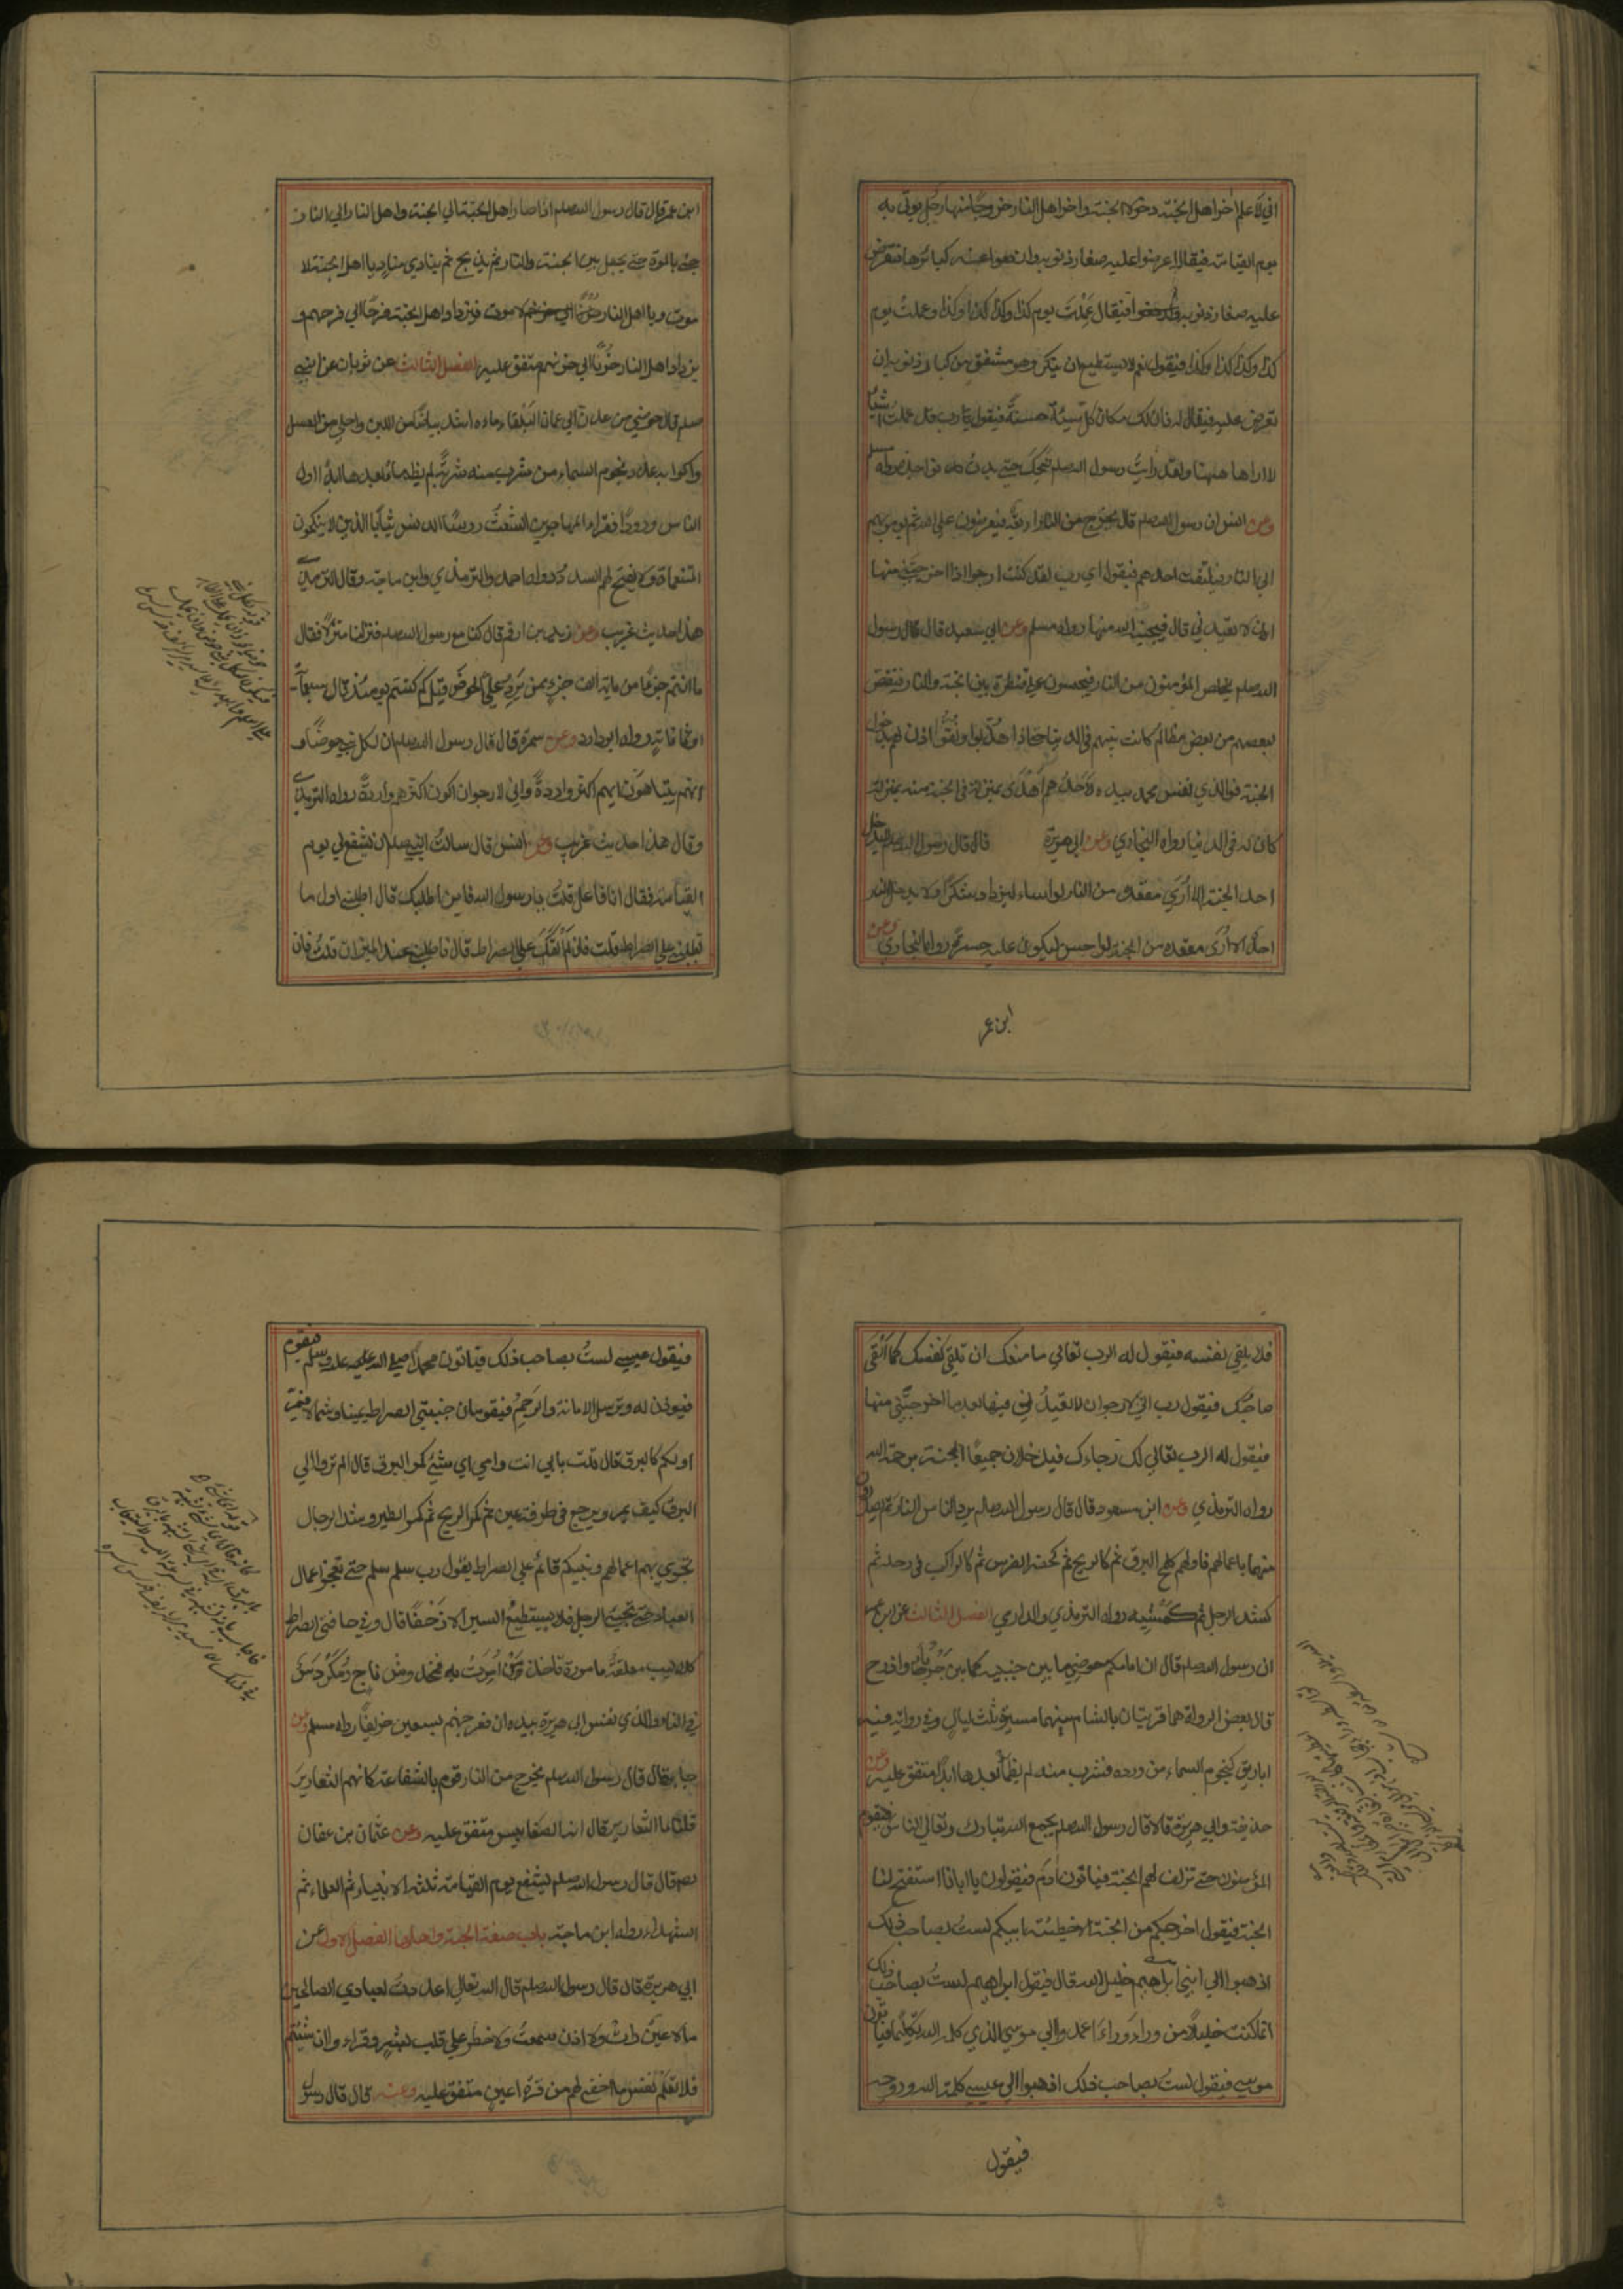 اني لاعلم اخر اهل الجنة دخولا الجنة واخر اهل النار خروجا منها رجل يوتى به
يوم القيامة فيقال اعرضوا عليه صغار ذنوبه وارفعوا عنه كبائرها فتعرض
عليه صغار ذنوبه فيقال عَمِلْتَ يوم كذا وكذا كذا وكذا وعملتَ يوم
كذا وكذا كذا وكذا فيقول نعم لا يستطيع ان ينكر وهو مشفق من كبار ذنوبه ان
تعرض عليه فيقال له فان لك مكان كل سيئة حسنةً فيقول يا رب قد عملتُ اشياء
لا اراها ههنا ولقد رايتُ رسول الله صلعم ضحك حتى بدت نواجذه رواه مسلم
وعن انس ان رسول الله صلعم قال يخرج من النار اربعة فيعرضون على الله ثم يومر بهم
الى النار فيلتفت احدهم فيقول اي رب لقد كنت ارجو اذا اخرجتني منها
ان لا تعيدني قال فينجيه الله منها رواه مسلم وعن ابي سعيد قال قال رسول
الله صلعم يخلص المؤمنون من النار فيحبسون على قنطرة بين الجنة والنار فيقتص
لبعضهم من بعض مظالم كانت بينهم في الدنيا حتى اذا هذبوا ونُقّوا اذن لهم في دخول
الجنة فوالذي نفس محمد بيده لاَحدهم اَهْدى بمنزله في الجنة منه بمنزله
كان له في الدنيا رواه البخاري وعن ابي هريرة قال قال رسول الله صلعم لا يدخل
احد الجنة الا اُرِيَ مقعده من النار لو اساء ليزداد شكرًا ولا يدخل النار
احد الا اُرِيَ مقعده من الجنة لو احسن ليكون عليه حسرة رواه البخاري وعن
ابن عمر
ابن عمر قال قال رسول الله صلعم اذا صار اهل الجنة الى الجنة واهل النار الى النار
جئ بالموت حتى يجعل بين الجنة والنار ثم يذبح ثم ينادي منادٍ يا اهل الجنة لا
موت ويا اهل النار لا موت فيزداد اهل الجنة فرحًا الى فرحهم و
يزداد اهل النار حُزنًا الى حزنهم متفق عليه الفصل الثالث عن ثوبان عن النبي
صلعم قال حوضي من عدن الى عمان البلقاء ماءه اشد بياضًا من اللبن واحلى من العسل
واكوابه عدد نجوم السماء من شرب منه شربةً لم يظما بعدها ابدًا اول
الناس ورودًا فقراء المهاجرين الشُعْثُ رءوسًا الدنس ثيابًا الذين لا ينكحون
المتنعمات ولا يفتح لهم السدد رواه احمد والترمذي وابن ماجة وقال الترمذي
هذا حديث غريب وعن زيد بن ارقم قال كنا مع رسول الله صلعم فنزلنا منزلاً فقال
ما انتم جزءًا من مائة الف جزءٍ ممن يَرِدُ عليَّ الحوضَ قيل كم كنتم يومئذ قال سبعمائة
او ثمانمائة رواه ابو داود وعن سمرة قال قال رسول الله صلعم ان لكل نبي حوضًا و
انهم يتباهون ايهم اكثر واردةً واني لارجو ان اكون اكثرهم واردةً رواه الترمذي
وقال هذا حديث غريب وعن انس قال سالتُ النبي صلعم ان يشفع لي يوم
القيامة فقال انا فاعل قلتُ يا رسول الله فاين اطلبك قال اطلبني اول ما
تطلبني على الصراط قلت فان لم اَلْقَكَ على الصراط قال فاطلبني عند الميزان قلتُ فان
فلا يلقي نفسه فيقول له الرب تعالى ما منعك ان تلقي نفسك كما اَلْقَى
صاحبك فيقول رب اني لارجو ان لا تعيدني فيها بعد ما اخرجتني منها
فيقول له الرب تعالى لك رجاءك فيدخلان جميعًا الجنة برحمة الله
رواه الترمذي وعن ابن مسعود قال قال رسول الله صلعم يرد الناس النار ثم يصدرون
منها باعمالهم فاولهم كلمح البرق ثم كالريح ثم كحضر الفرس ثم كالراكب في رحله ثم
كشد الرجل ثم كمَشْيِه رواه الترمذي والدارمي الفصل الثالث عن ابن عمر
ان رسول الله صلعم قال ان امامكم حوضي ما بين جنبيه كما بين جَرْباءَ واذرح
قال بعض الرواة هما قريتان بالشام بينهما مسيرة ثلث ليالٍ وفي رواية فيه
اباريق كنجوم السماء من ورده فشرب منه لم يظمأ بعدها ابدًا متفق عليه وعن
حذيفة وابي هريرة قالا قال رسول الله صلعم يجمع الله تبارك وتعالى الناس فيقوم
المؤمنون حتى تزلف لهم الجنة فياتون آدم فيقولون يا ابانا استفتح لنا
الجنة فيقول اخرجكم من الجنة الا خطيئة ابيكم لستُ بصاحب ذلك
اذهبوا الى ابني ابراهيم خليل الله قال فيقول ابراهيم لستُ بصاحب ذلك
انما كنت خليلاً من وراءَ وراءَ اعمدوا الى موسى الذي كلمه الله تكليمًا فياتون
موسى فيقول لستُ بصاحب ذلك اذهبوا الى عيسى كلمة الله وروحه
فيقول
فيقول عيسى لستُ بصاحب ذلك فياتون محمدًا صلى الله عليه وسلم فيقوم
فيوذن له وترسل الامانة والرَحِمُ فيقومان جنبتي الصراط يمينا وشمالا فيمر
اولكم كالبرق قال قلت بابي انت وامي اي شيءٍ كمر البرق قال الم تروا الى
البرق كيف يمر ويرجع في طرفة عين ثم كمر الريح ثم كمر الطير وشد الرجال
تجري بهم اعمالهم ونبيكم قائم على الصراط يقول رب سلم سلم حتى تعجز اعمال
العباد حتى يجيئ الرجل فلا يستطيعُ السير الا زَحْفًا قال وفي حافتي الصراط
كلاليب معلقةٌ مامورة تاخذ مَنْ اُمِرَتْ به فمخدوش ناجٍ ومُكَرْدَسٌ
في النار والذي نفس ابي هريرة بيده ان قعر جهنم لسبعين خريفًا رواه مسلم وعن
جابر قال قال رسول الله صلعم يخرج من النار قوم بالشفاعة كانهم الثعارير
قلنا ما الثعارير قال انه الضغابيس متفق عليه وعن عثمان بن عفان
رضه قال قال رسول الله صلعم يشفع يوم القيامة ثلثة الانبياء ثم العلماء ثم
الشهداء رواه ابن ماجة باب صفة الجنة واهلها الفصل الاول عن
ابي هريرة قال قال رسول الله صلعم قال الله تعالى اعددتُ لعبادي الصالحين
ما لا عينٌ رات ولا اذن سمعتْ ولا خطر على قلب بشرٍ وقراءوا ان شئتم
فلا تعلم نفس ما اخفي لهم من قرة اعين متفق عليه وعنه قال قال رسول